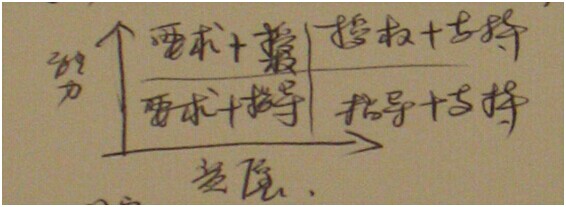 要求+ 授权+支持
能力
要求+指导 指导+支持
意愿.